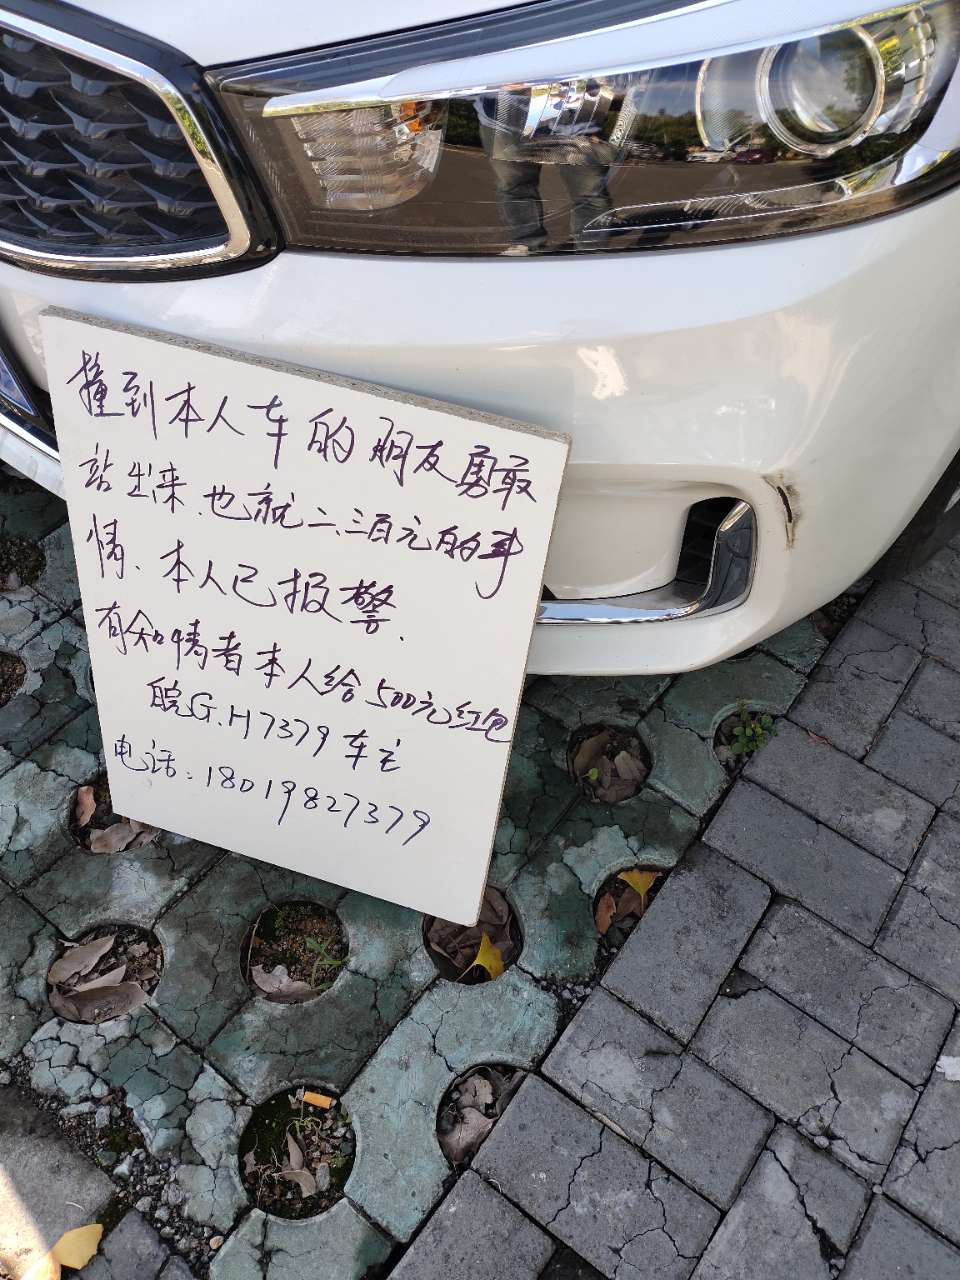 撞到本人车的朋友勇敢
站出来.也就二.三百元的事
情.本人已报警.
有知情者本人给500元红包
皖G.H7379车主
电话:18019827379